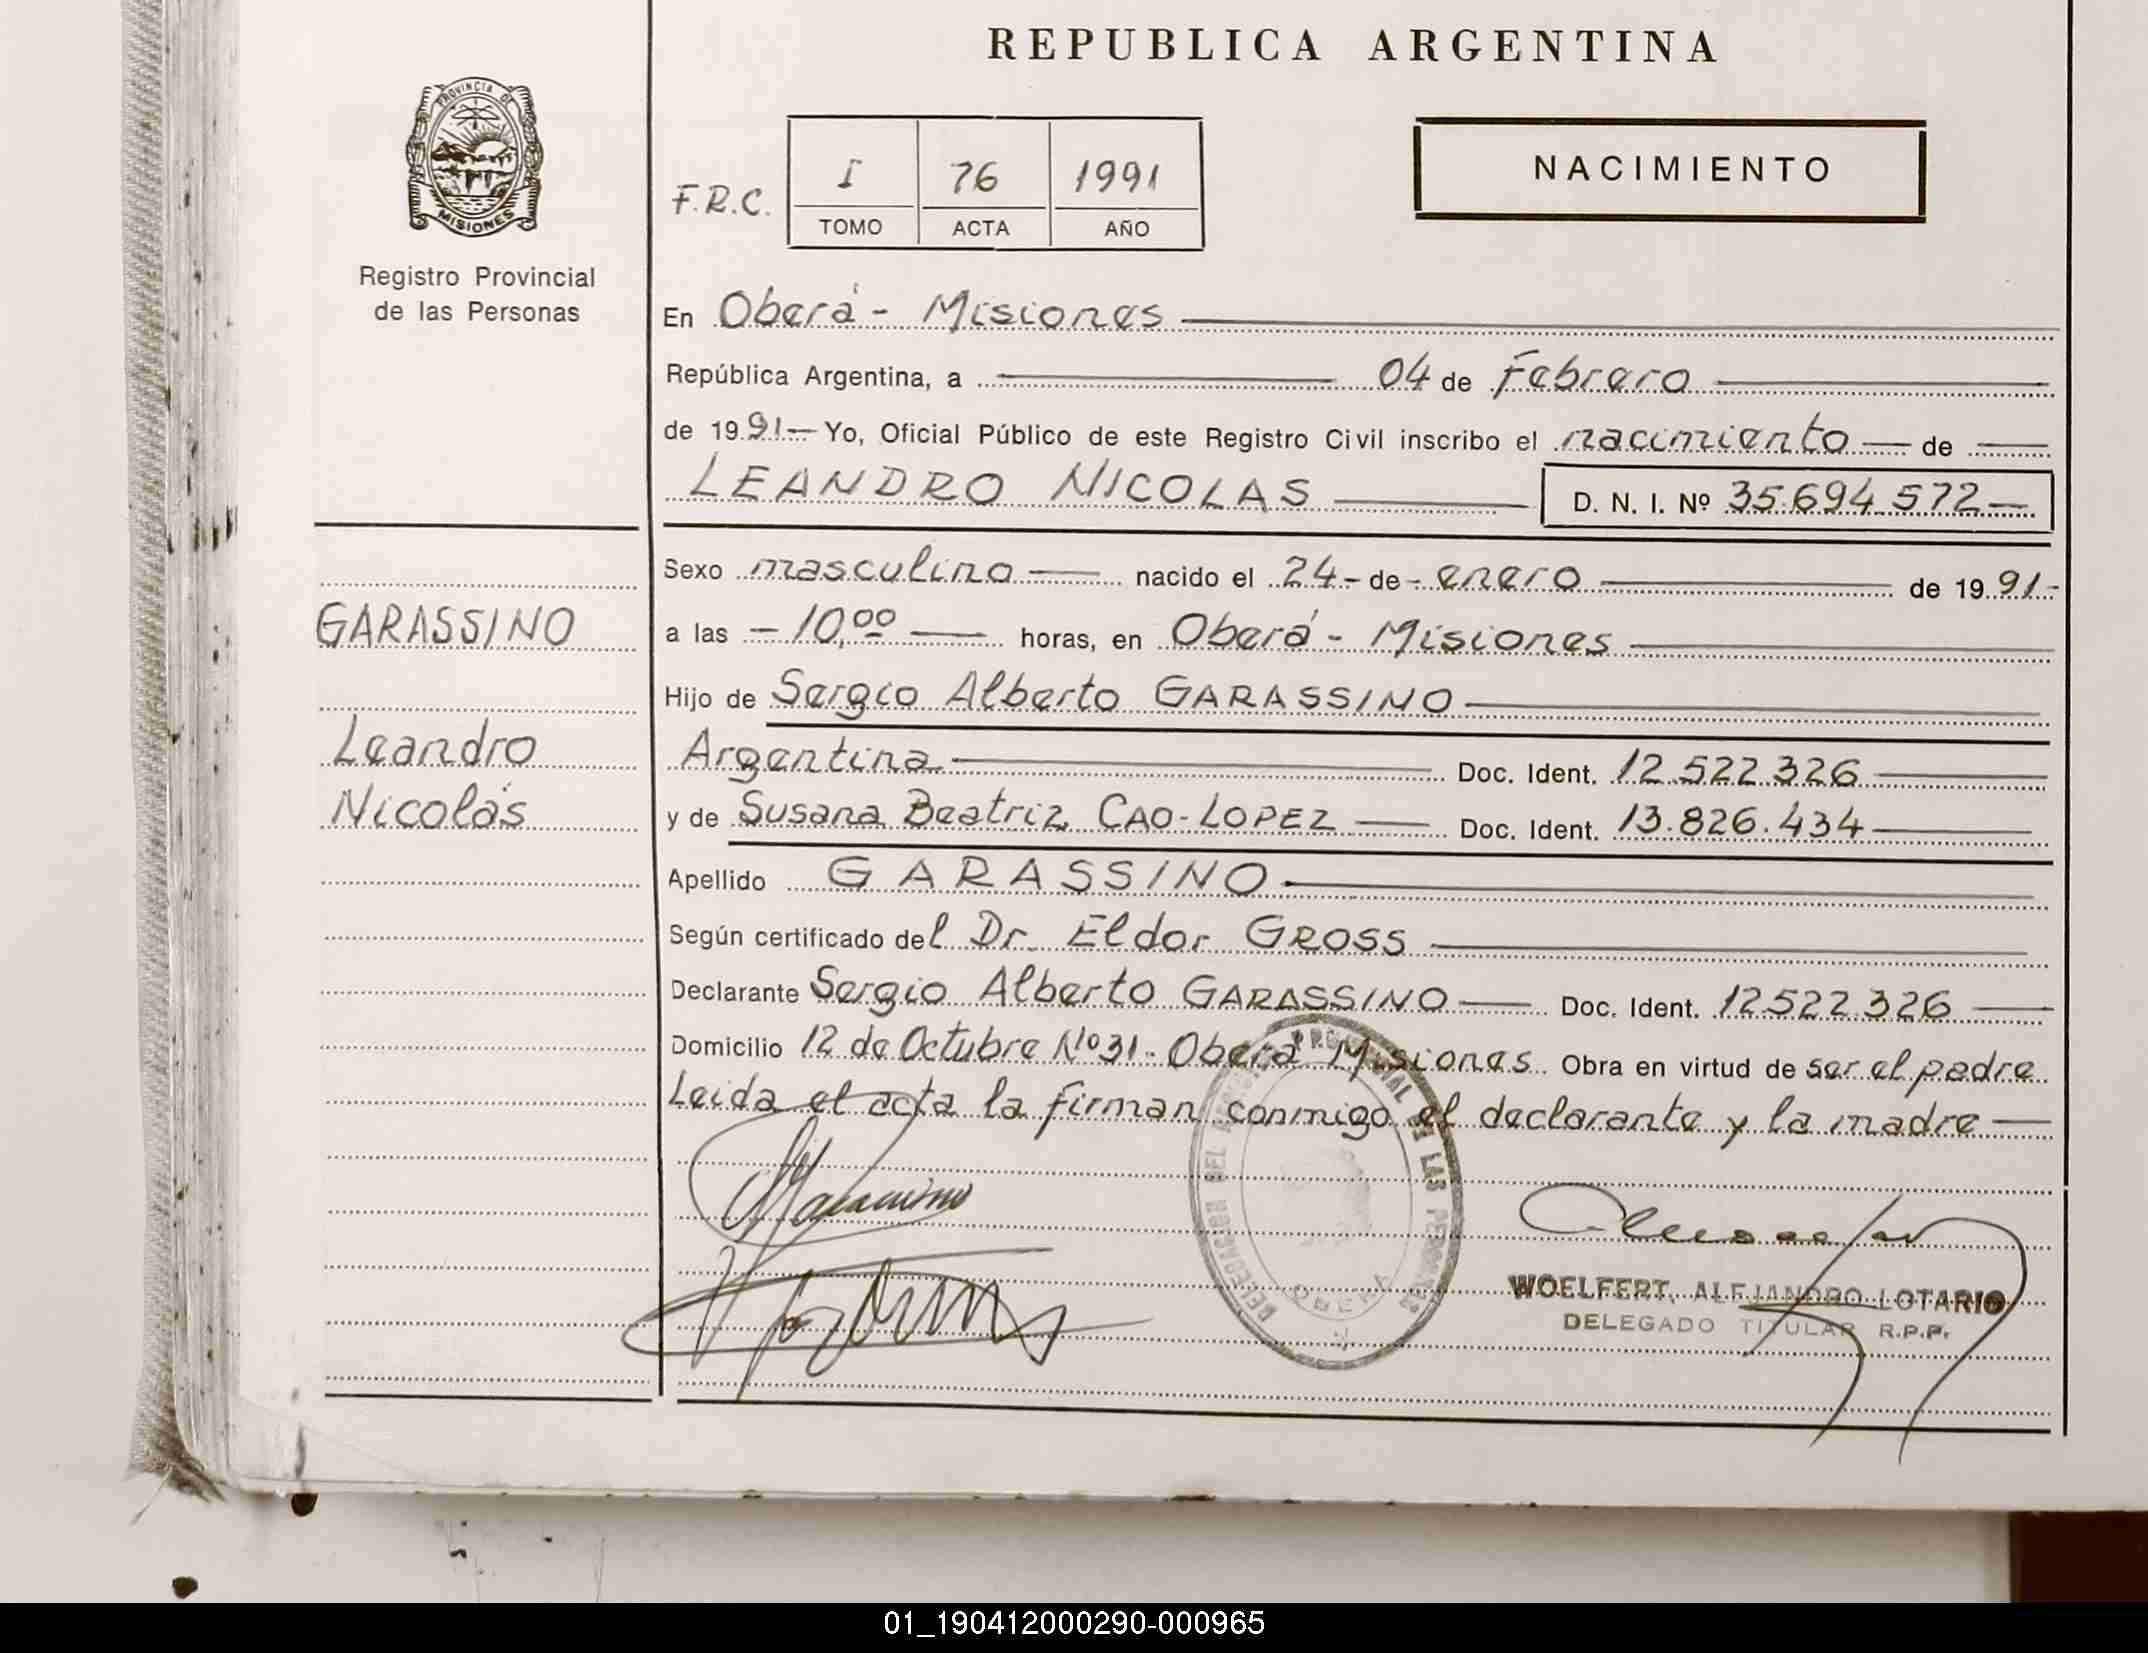 REPUBLICA ARGENTINA
PROVINCIA DE
MISIONES
Registro Provincial
de las Personas
F.R.C.
I 76 1991
TOMO ACTA AÑO
NACIMIENTO
En Oberá - Misiones
República Argentina, a 04 de Febrero
de 1991 Yo, Oficial Público de este Registro Civil inscribo el nacimiento de
LEANDRO NICOLAS D. N. I. Nº 35.694.572
Sexo masculino nacido el 24 - de - enero de 1991 -
GARASSINO
a las - 10,00 horas, en Oberá - Misiones
Hijo de Sergio Alberto GARASSINO
Leandro
Argentina Doc. Ident. 12.522.326
Nicolás
y de Susana Beatriz CAO-LOPEZ Doc. Ident. 13.826.434
Apellido GARASSINO
Según certificado del Dr. Eldor GROSS
Declarante Sergio Alberto GARASSINO Doc. Ident. 12.522.326
Domicilio 12 de Octubre Nº 31 - Oberá Misiones Obra en virtud de ser el padre
Leida el acta la firman conmigo el declarante y la madre
DELEGACION DEL REGISTRO PROVINCIAL DE LAS PERSONAS
OBERA
WOELFERT, ALEJANDRO LOTARIO
DELEGADO TITULAR R.P.P.
01_190412000290-000965